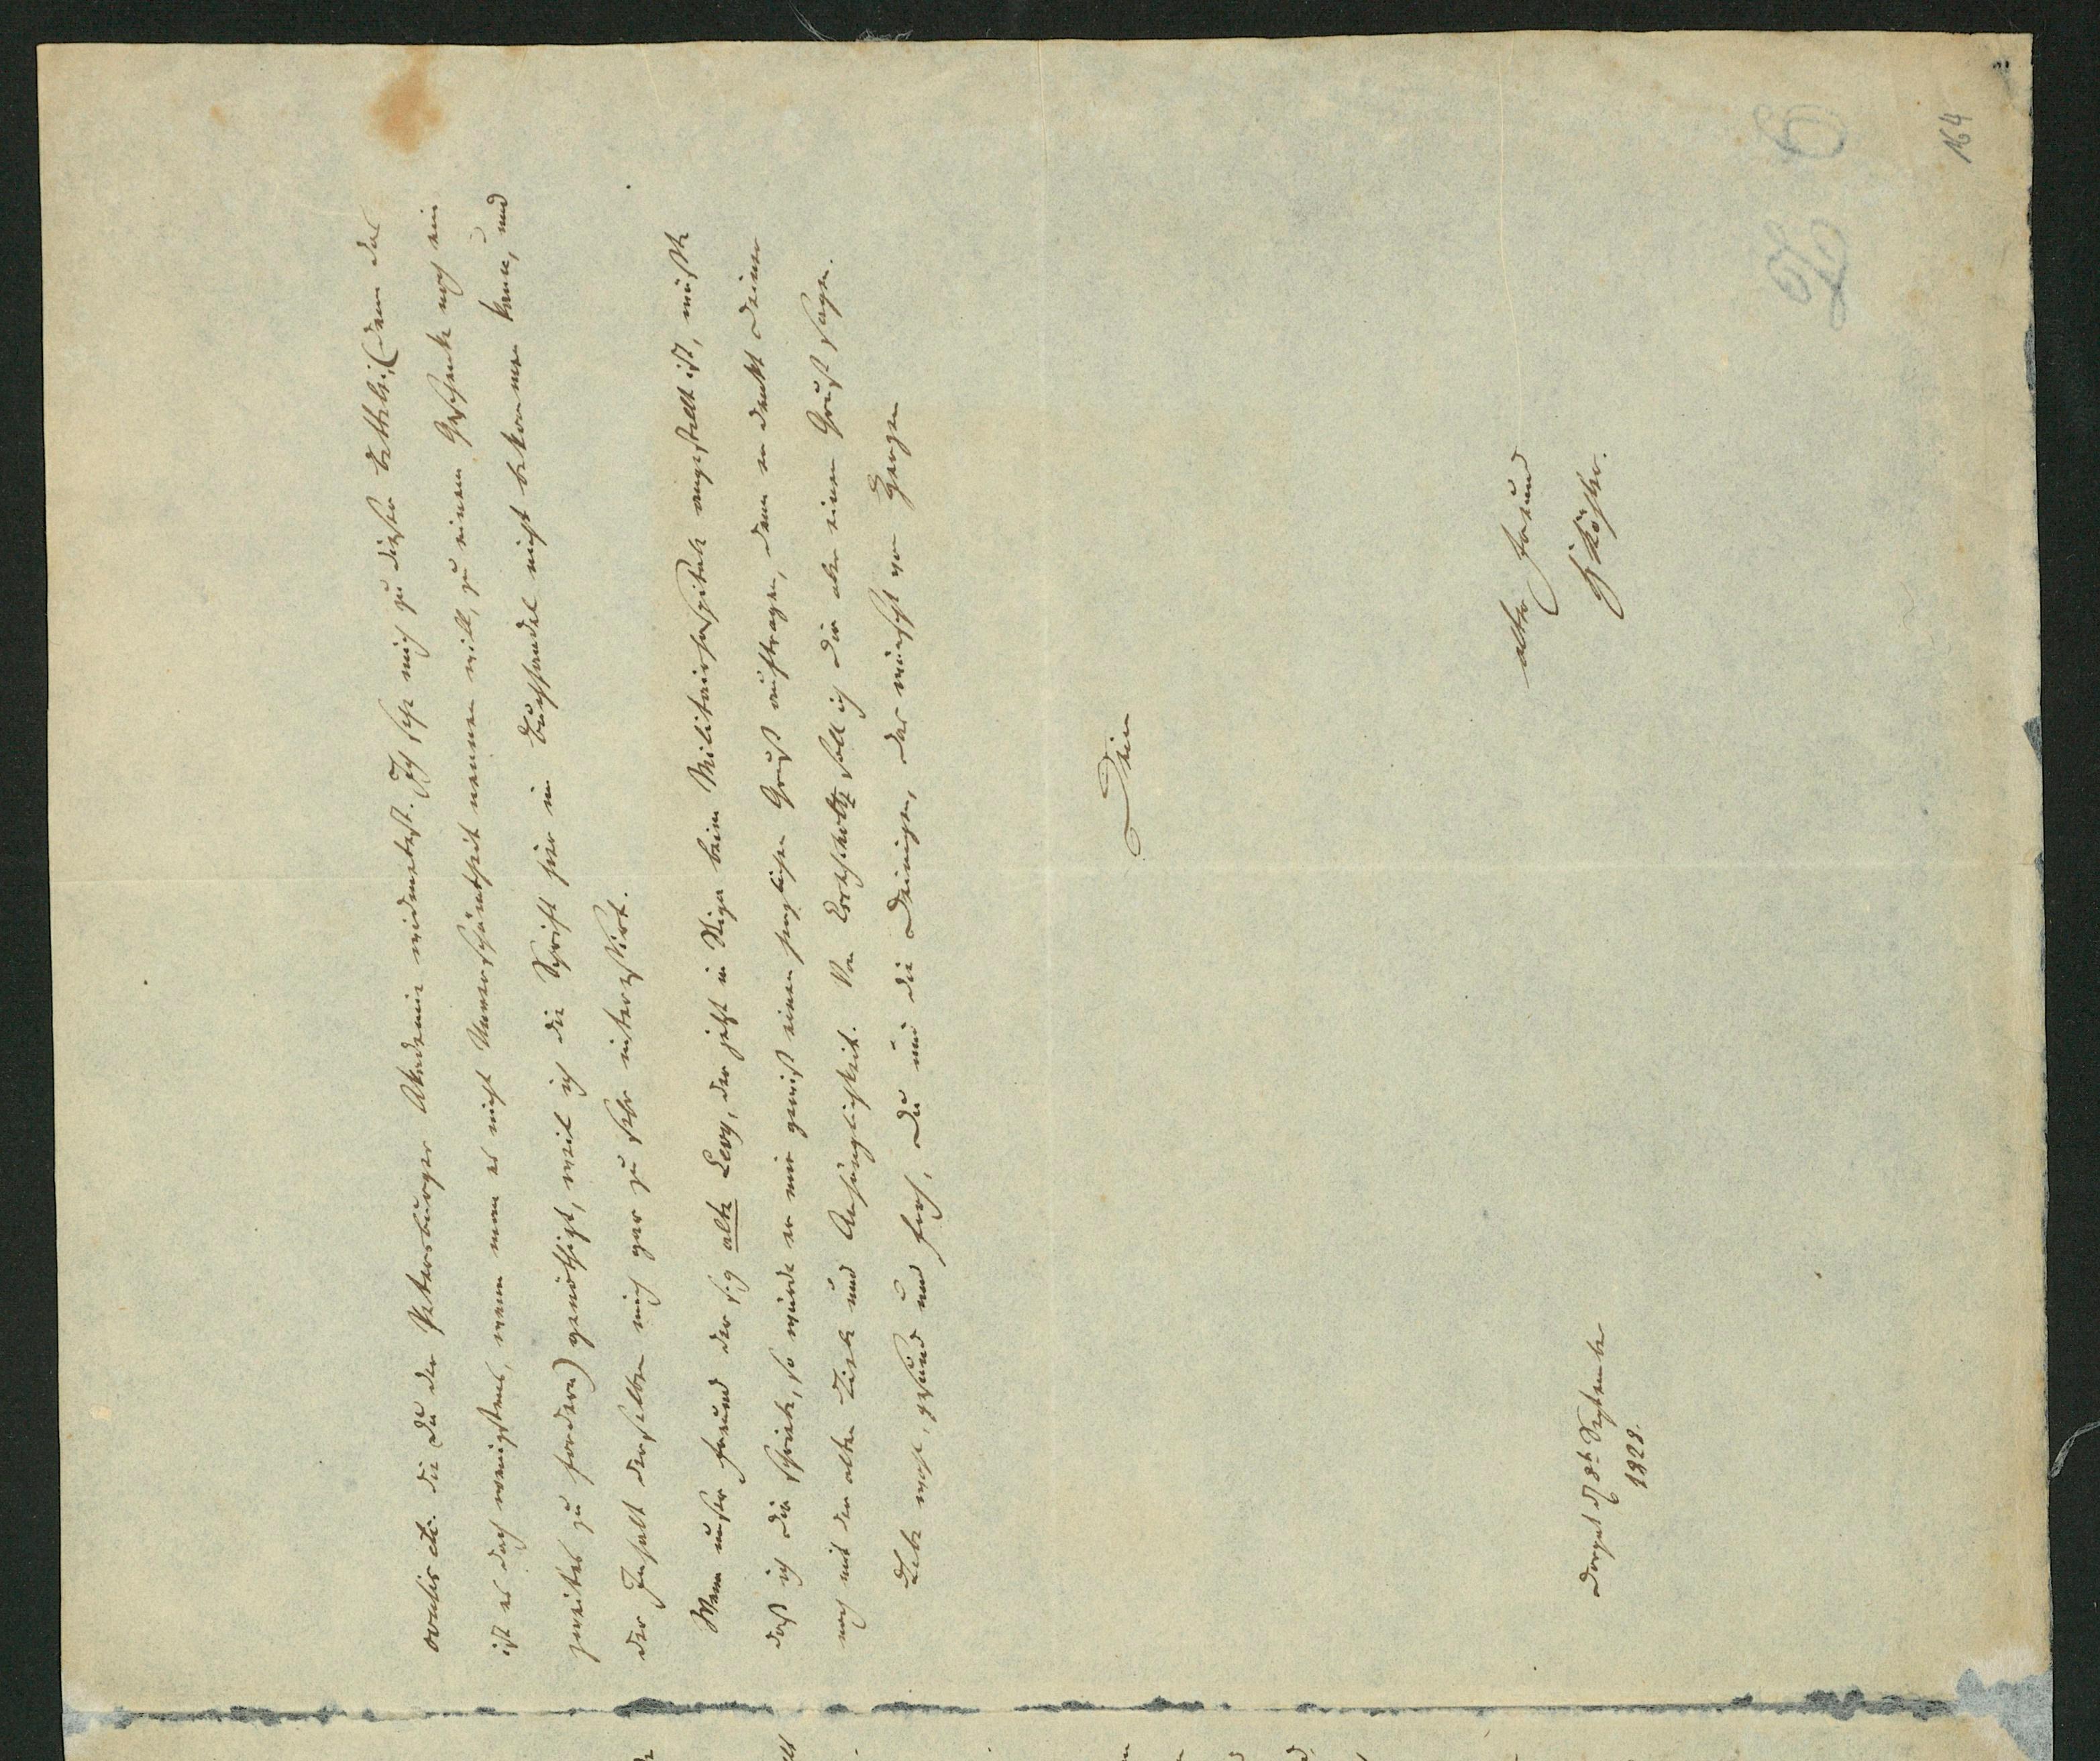 ovulis etc. die Du der Petersburger Akademie widmetest. Ich sehe mich zu dieser Bettelei, (denn das
ist es doch wenigstens, wenn man es nicht Unverschämtheit nennen will, zu einem Geschenke noch ein
zweites zu fordern) genöthigt, weil ich die Schrift hier im Buchhandel nicht bekommen kann, und
der Inhalt derselben mich gar zu sehr interessirt.
Wenn unser Freund der sig alte Levy, der jetzt in Riga beim Militairhospitale angestellt ist, wüßte
daß ich Dir schriebe, so würde er mir gewiß einen herzlichen Gruß auftragen, denn er denkt Deiner
noch mit der alten Liebe und Anhänglichkeit. Von Eschscholtz soll ich Dir aber einen Gruß sagen.
Lebe wohl, gesund und froh, Du und die Deinigen, das wünscht von Herzen
Dein
alter Freund
Köhler.
Dorpat d 8t September
1828.
164